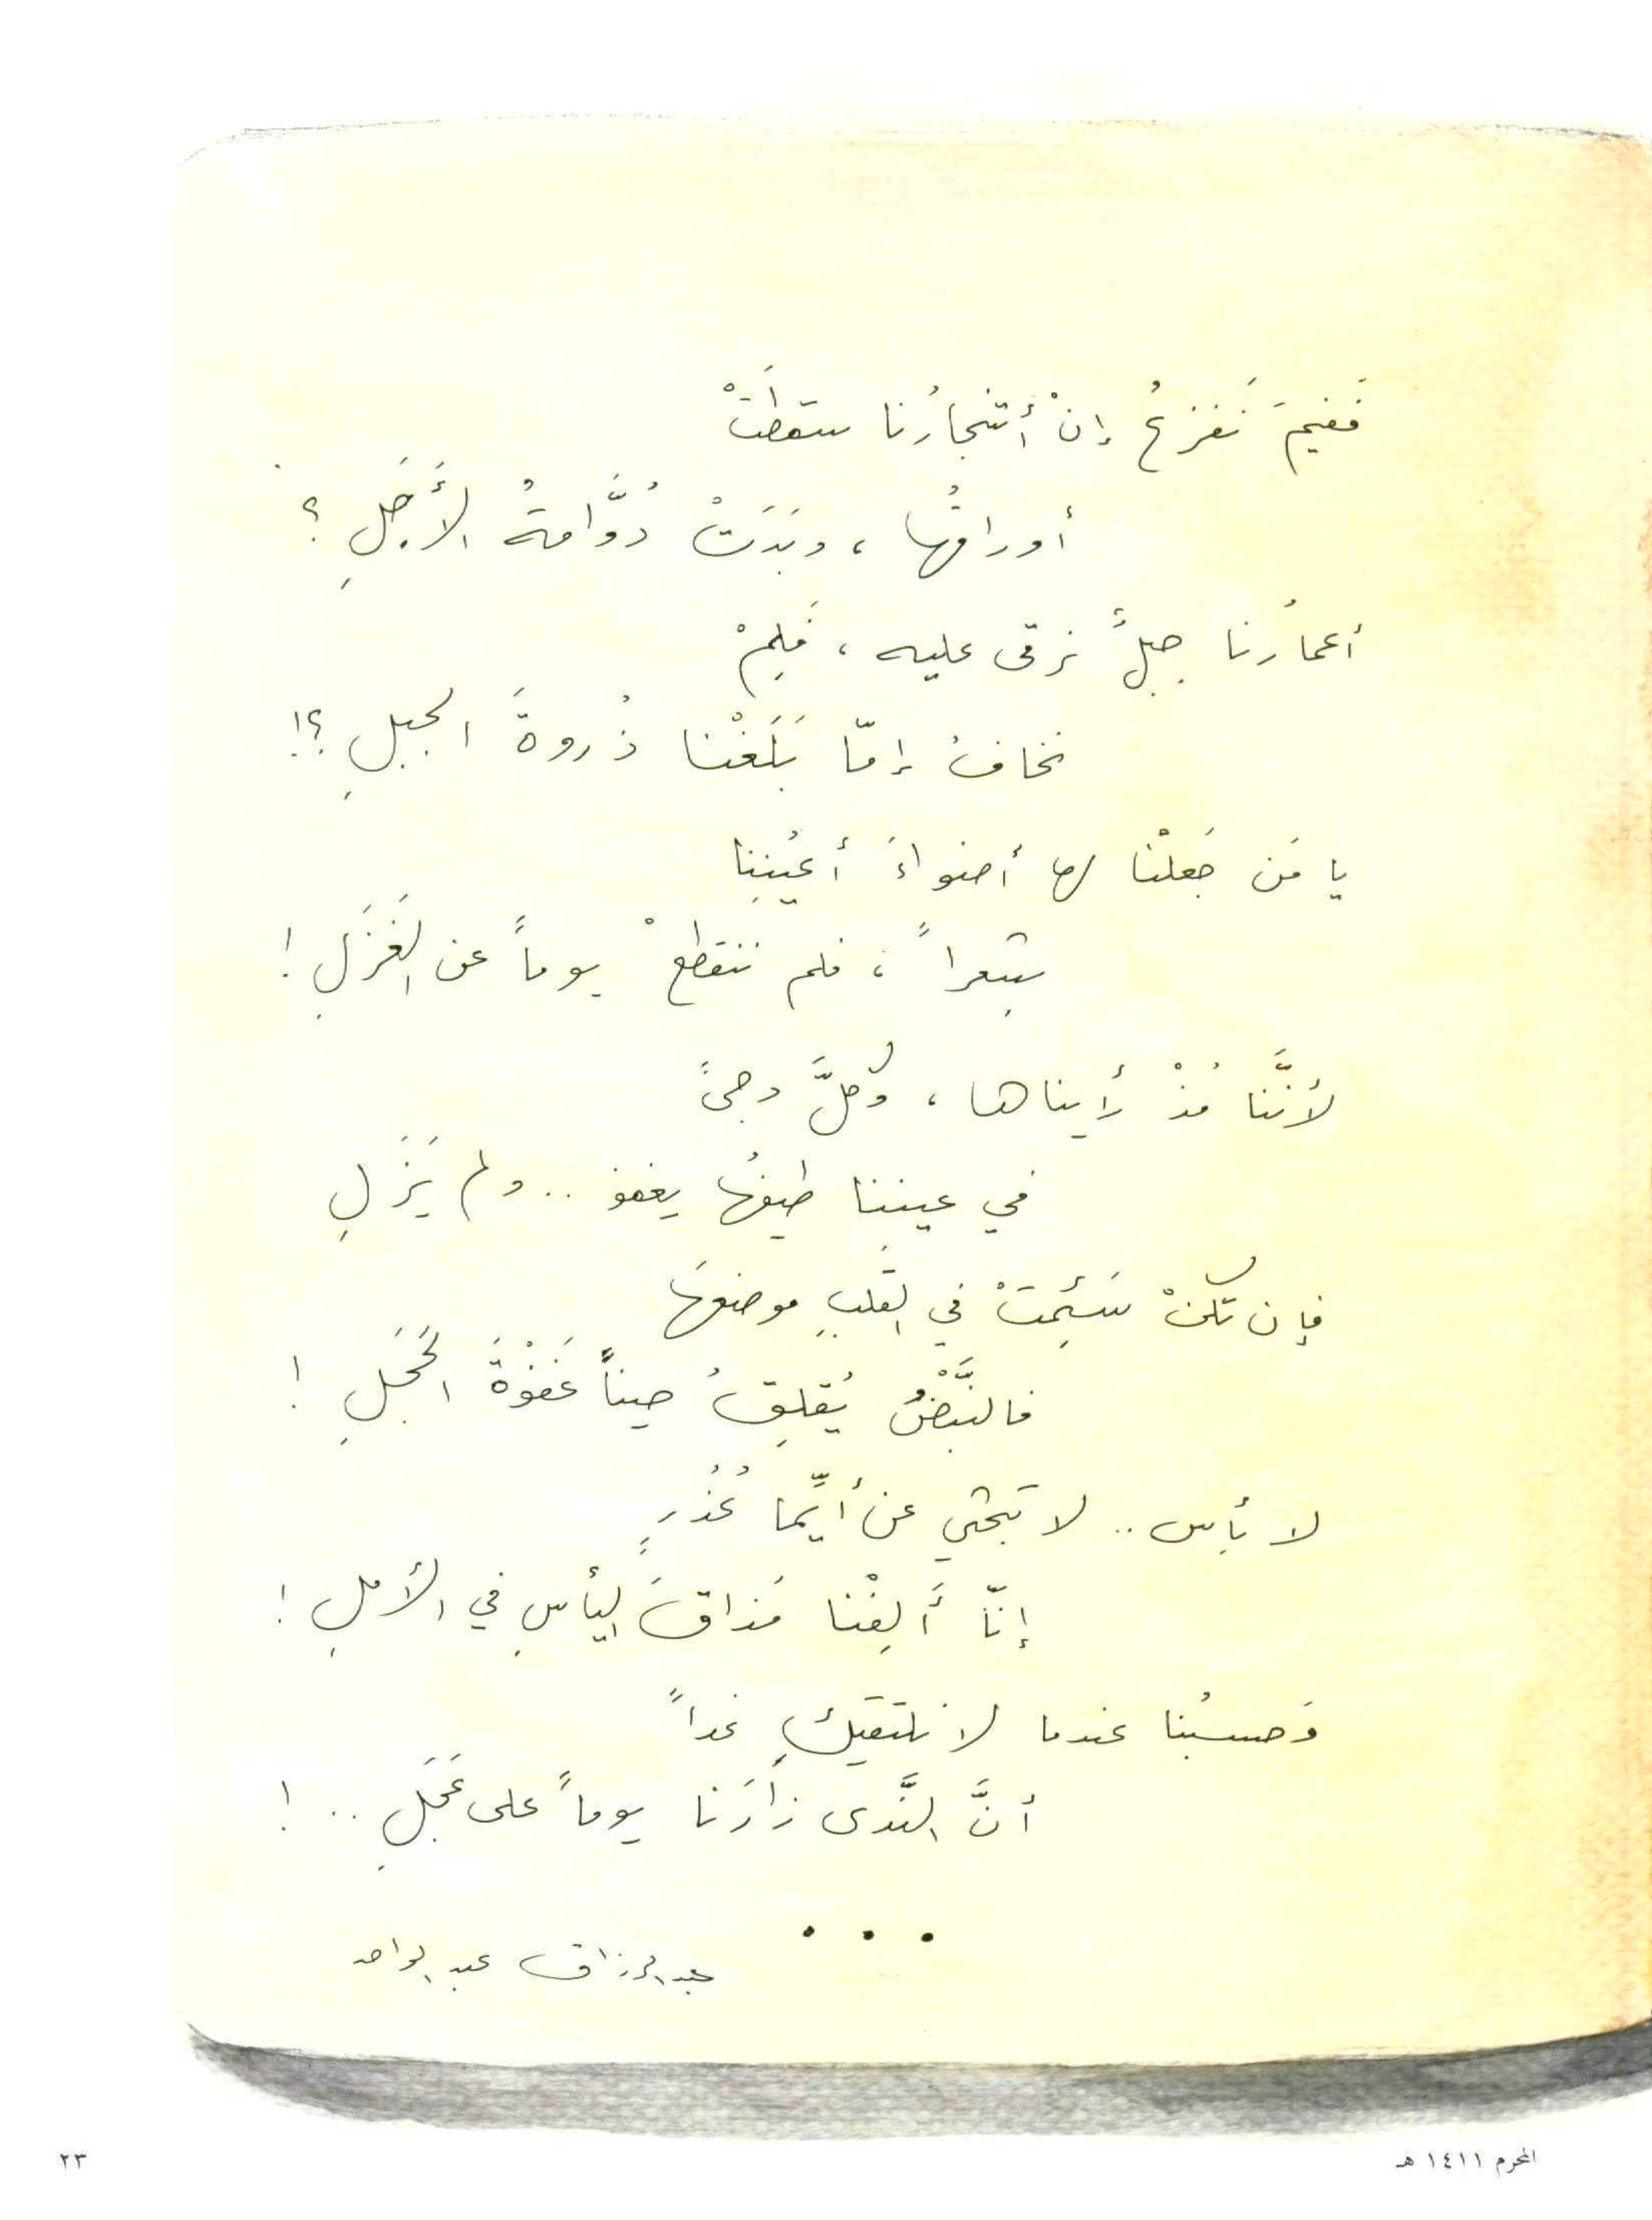 فَفيمَ نَفزعُ إنْ أشجارُنا سقطَتْ
أوراقُها ، وبَدَتْ دُوَّامةُ الأَجَلِ ؟
أعمارُنا جبلٌ نرقى عليه ، فَلِمْ
نخافُ إمّا بَلَغْنا ذُروةَ الجبلِ ؟!
يا مَن جَعلْنا لها أضواءَ أعيُنِنا
شِعراً ، فلم ننقطعْ يوماً عن الغَزَلِ !
لأنَّنا مُذْ رأيناها ، وُكلَّ دجىً
في عينِنا طيفُها يغفو .. ولم يَزَلِ
فإن تكنْ سَئِمَتْ في القلبِ موضعَها
فالنَّبْضُ يُقلِقُ حيناً غَفْوَةَ الحَجَلِ !
لا بأس .. لا تبحثي عن أيِّما عُذُرٍ
إنّا أَلِفْنا مَذاقَ اليأسِ في الأملِ !
وَحسبُنا عندما لا نلتقيكِ غداً
أنَّ النَّدى زارَنا يوماً على عَجَلِ .. !
• • •
عبد الرزاق عبد الواحد
المحرم ١٤١١ هـ
٢٣